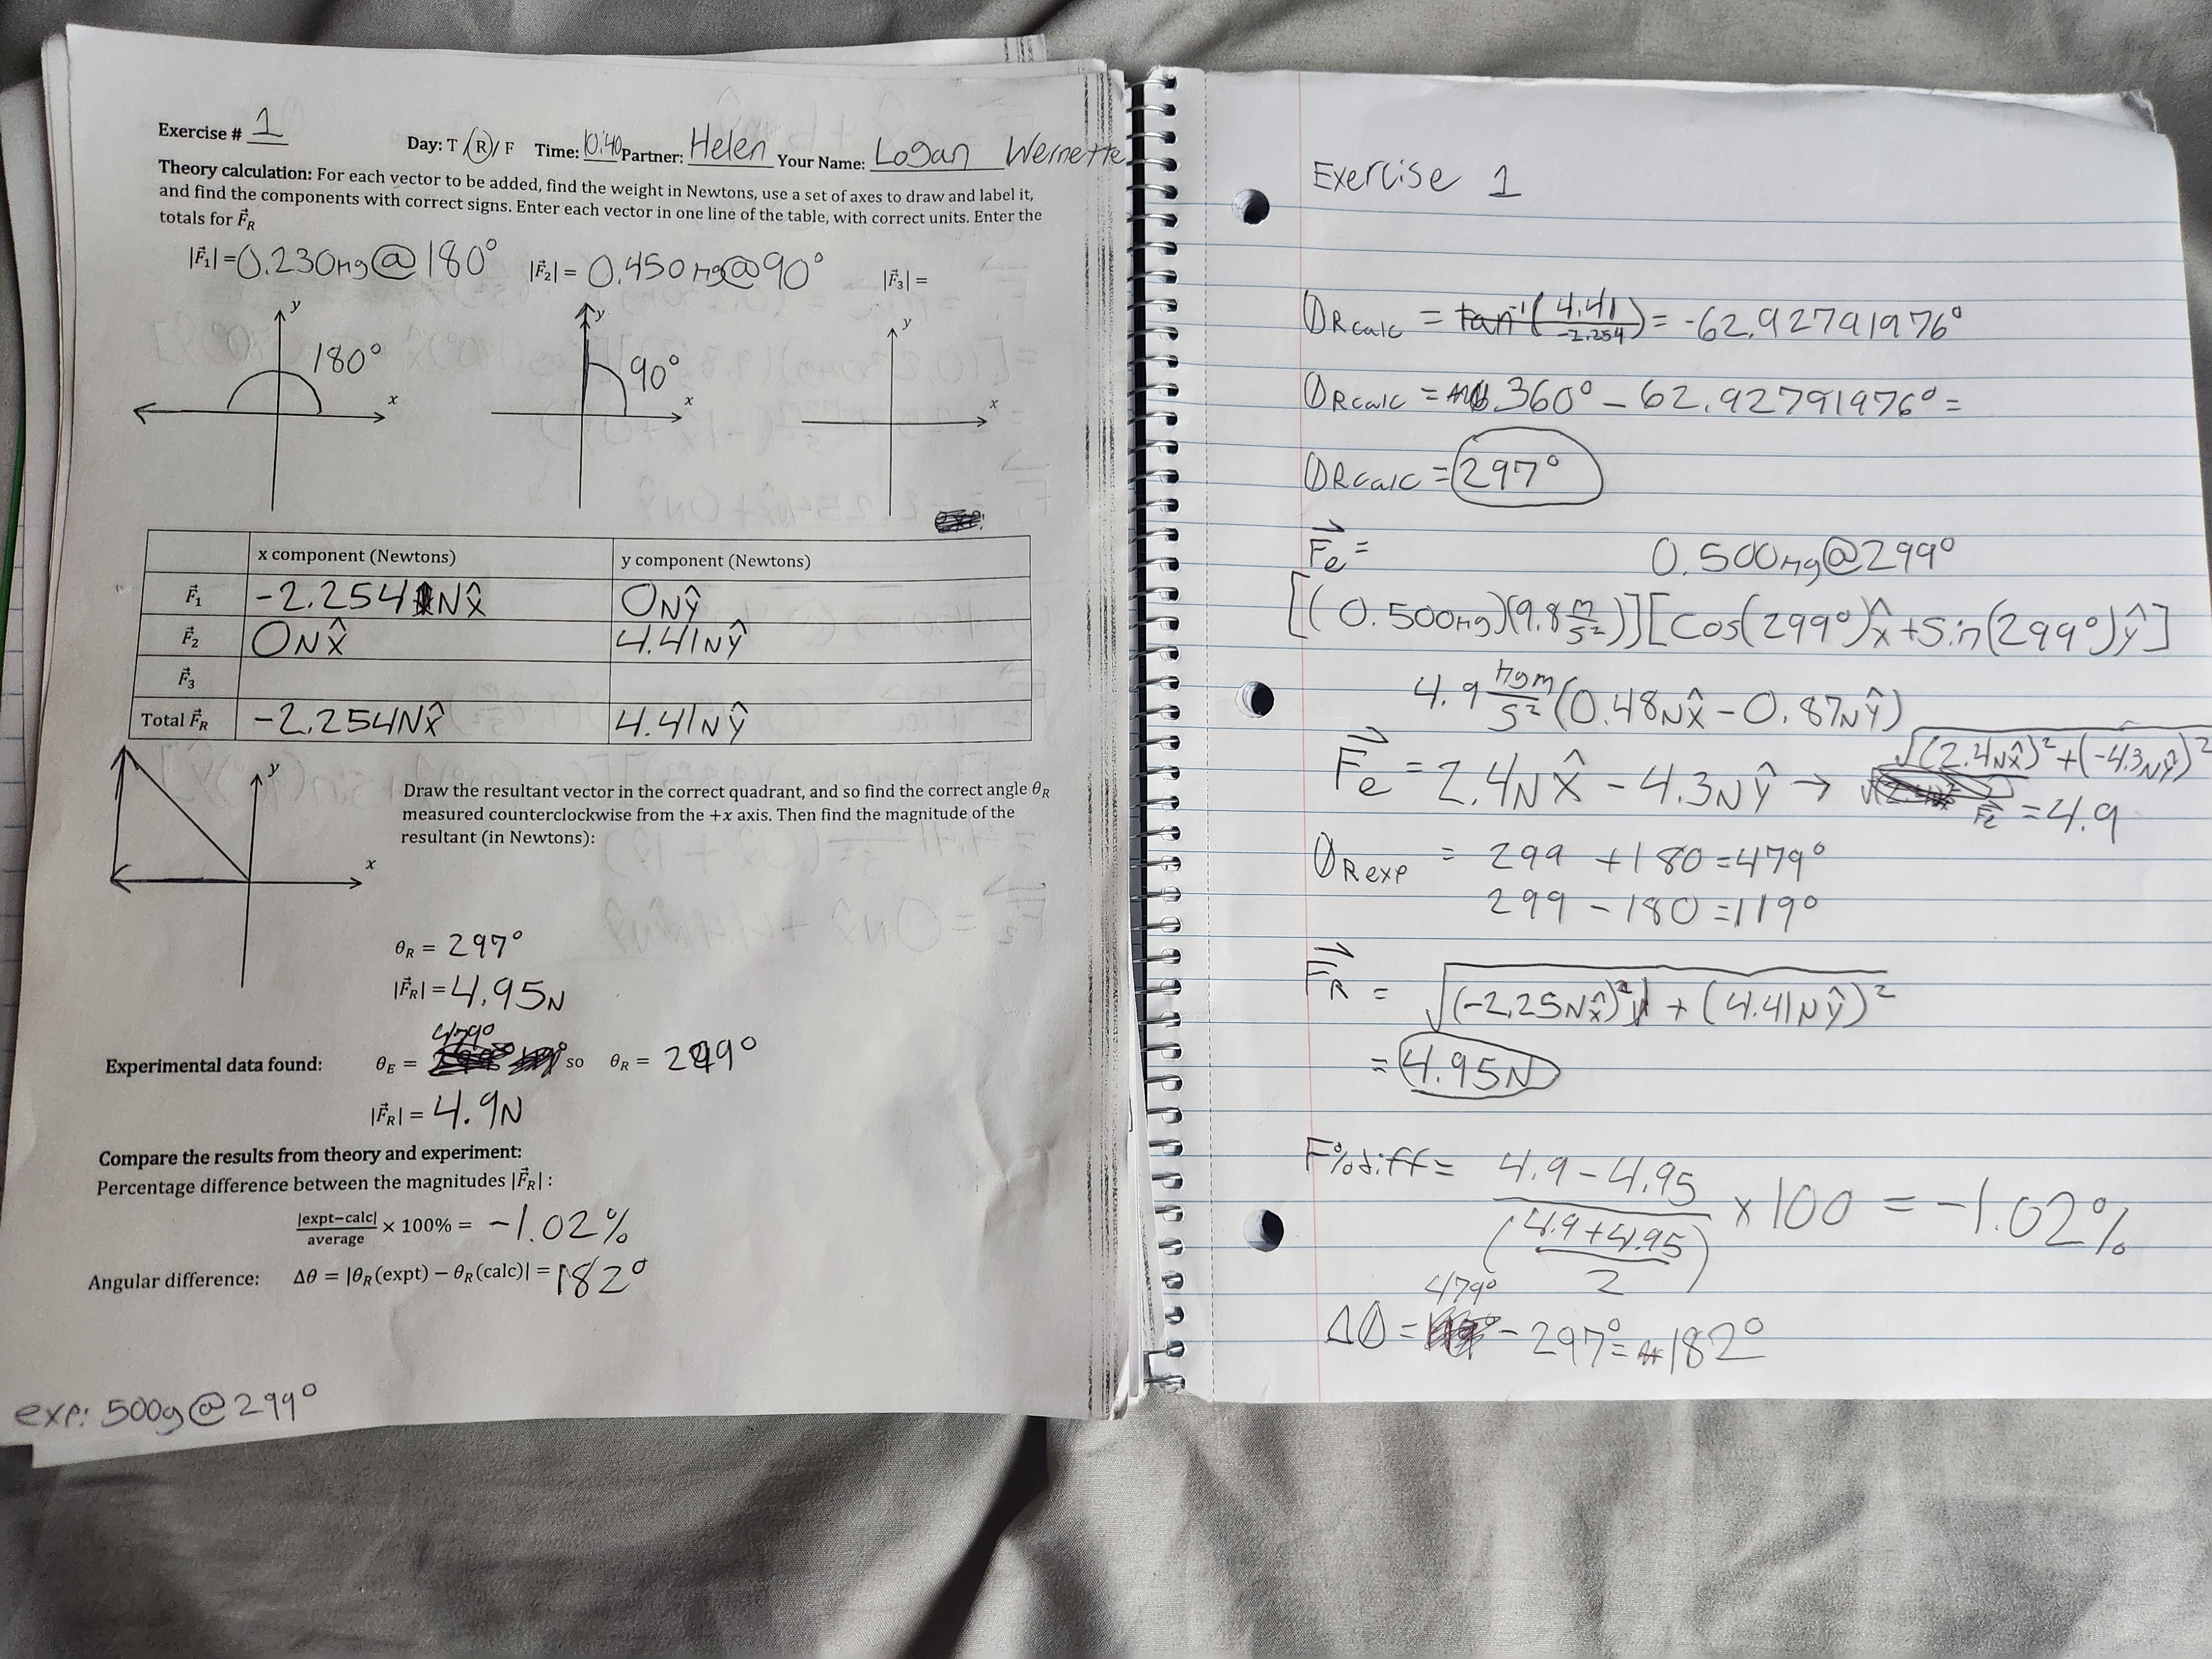 Exercise # 1
Day: T / R / F Time: 10:40 Partner: Helen Your Name: Logan Wernette
Theory calculation: For each vector to be added, find the weight in Newtons, use a set of axes to draw and label it,
and find the components with correct signs. Enter each vector in one line of the table, with correct units. Enter the
totals for F⃗R
|F⃗1| = 0.230kg@180° |F⃗2| = 0.450kg@90° |F⃗3| =
y y y
180° 90°
x x x
x component (Newtons) y component (Newtons)
F⃗1 -2.254Nx̂ 0Nŷ
F⃗2 0Nx̂ 4.41Nŷ
F⃗3
Total F⃗R -2.254Nx̂ 4.41Nŷ
y
x
Draw the resultant vector in the correct quadrant, and so find the correct angle θR
measured counterclockwise from the +x axis. Then find the magnitude of the
resultant (in Newtons):
θR = 297°
|F⃗R| = 4.95N
Experimental data found: θE = 479° so θR = 299°
|F⃗R| = 4.9N
Compare the results from theory and experiment:
Percentage difference between the magnitudes |F⃗R| :
|expt−calc| / average × 100% = -1.02%
Angular difference: Δθ = |θR(expt) − θR(calc)| = 182°
exp: 500g@299°
Exercise 1
θRcalc = tan⁻¹(4.41/-2.254) = -62.92791976°
θRcalc = 360° - 62.92791976° =
θRcalc = 297°
F⃗e = 0.500kg@299°
[(0.500kg)(9.8 m/s²)][cos(299°)x̂ + sin(299°)ŷ]
4.9 kgm/s² (0.48Nx̂ - 0.87Nŷ)
F⃗e = 2.4Nx̂ - 4.3Nŷ → √((2.4Nx̂)² + (-4.3Nŷ)²
F⃗e = 4.9
θRexp = 299 + 180 = 479°
299 - 180 = 119°
F⃗R = √((-2.25Nx̂)² + (4.41Nŷ)²
= 4.95N
F%diff = 4.9 - 4.95 / (4.9+4.95 / 2) × 100 = -1.02%
Δθ = 479° - 297° = 182°